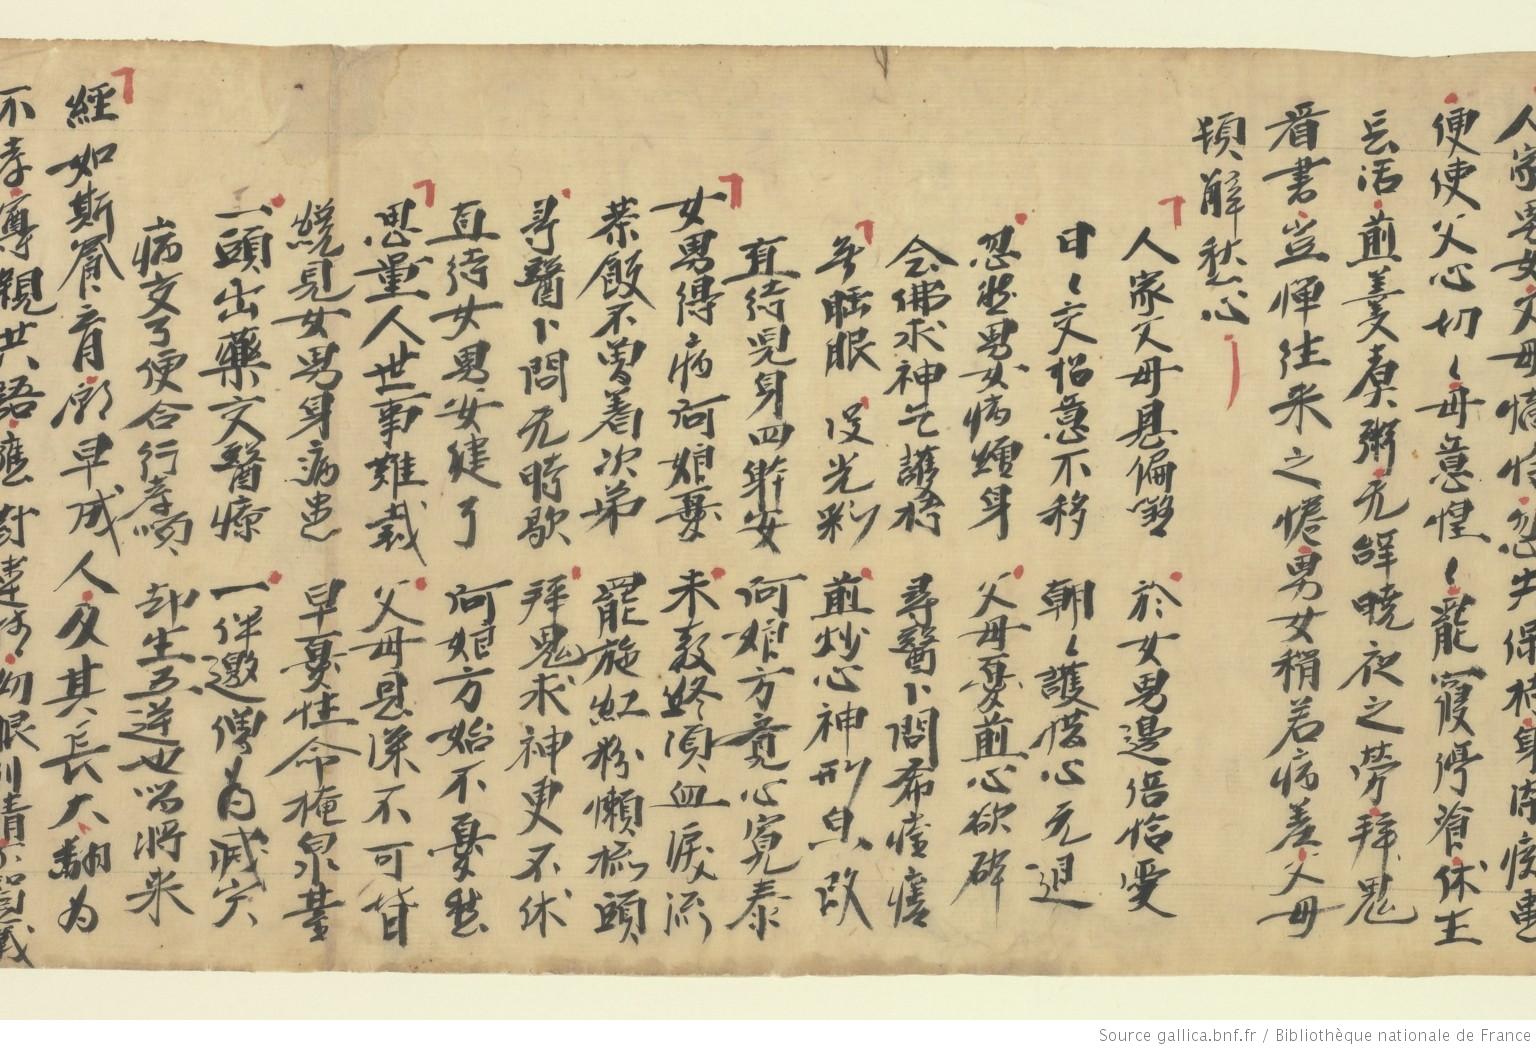 人家男女父母憐
便使父心切〻母意惶〻寵寢停湌休生
忘活煎羹煑粥无辞曉夜之勞拜鬼
看書豈憚往来之惓男女稍若病差父母
頓解愁心
人家父母恩偏 於女男邊倍恰愛
日〻交招意不移 朝〻護惜心无退
忽然男女病纏身 父母憂煎心欲碎
念佛求神乞護持 尋醫卜問希
无睡眠 沒光彩 煎炒心神形皃改
直待兒身四 安 阿娘方覓心寛泰
女男得病阿娘憂 未教終須血淚流
茶飯不曾着次弟 罷施紅粉懶梳頭
尋醫卜問无時歇 拜鬼求神更不休
直待女男安健了 阿娘方始不憂愁
思量人世事難裁 父母恩深不可皆
纔見女男身病患 早憂性命掩泉臺
一頭出藥交醫療 一伴邀僧為滅灾
病交了便合行孝順 却生五逆也唱將来
經如斯養育願早成人及其長大翻為
不孝尊親共語應對
Source gallica.bnf.fr / Bibliothèque nationale de France